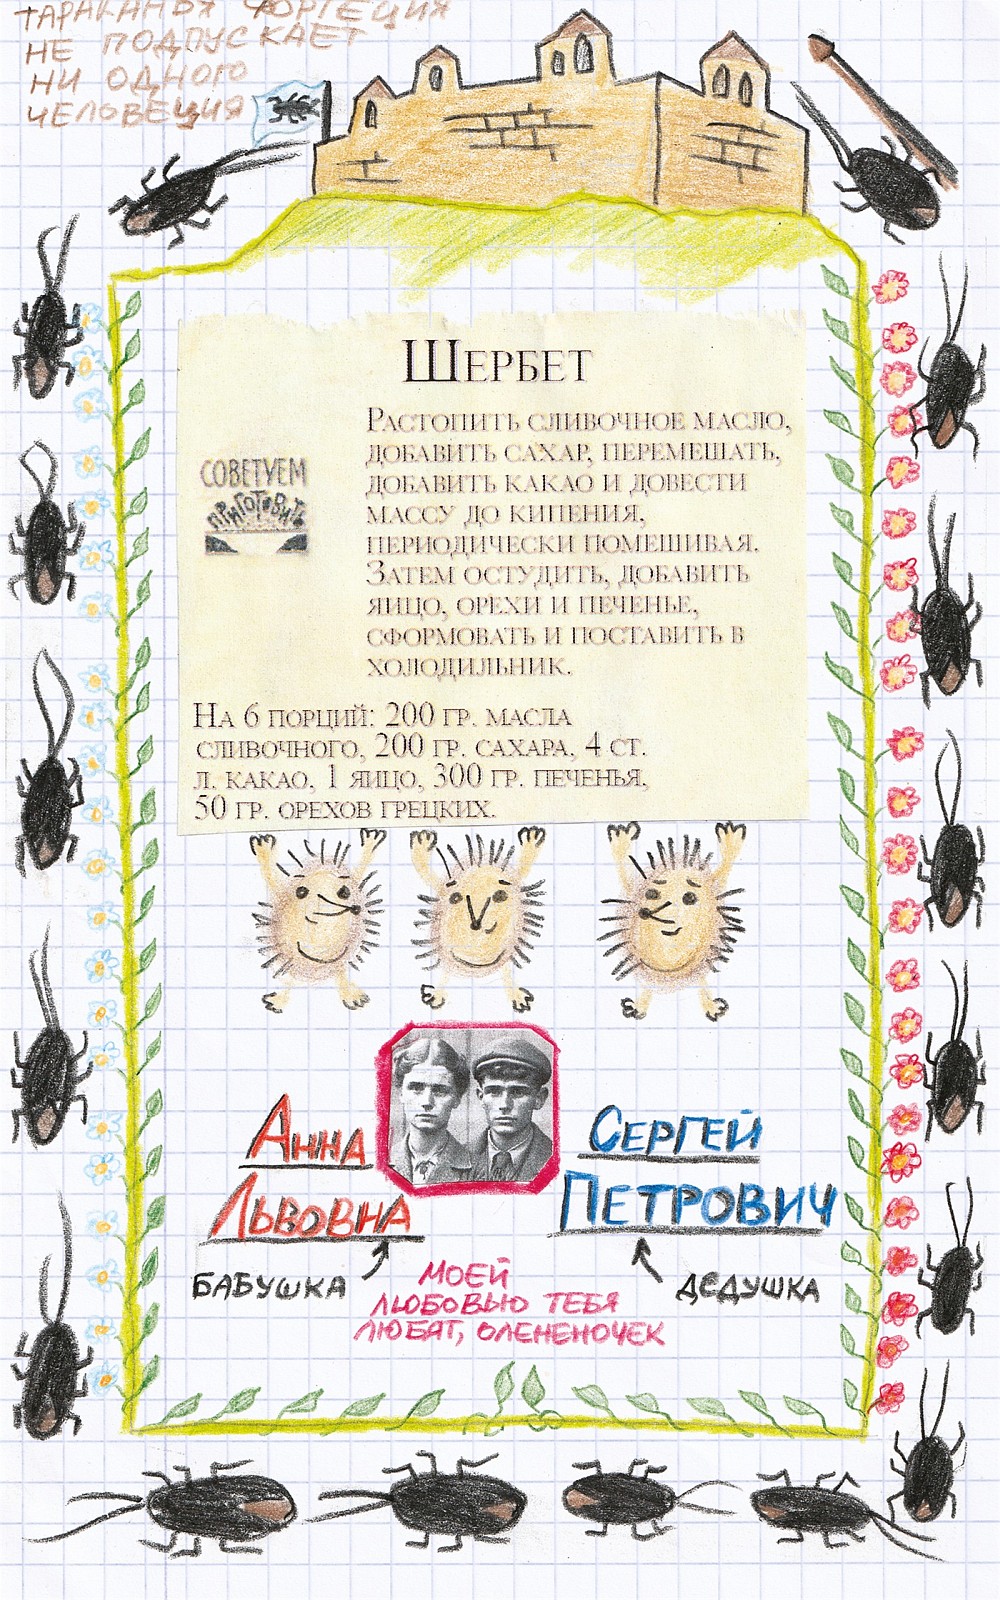 ТАРАКАНЬЯ ФОРТЕЦИЯ
НЕ ПОДПУСКАЕТ
НИ ОДНОГО
ЧЕЛОВЕЦИЯ
ШЕРБЕТ
СОВЕТУЕМ
ПРИГОТОВИТЬ
РАСТОПИТЬ СЛИВОЧНОЕ МАСЛО,
ДОБАВИТЬ САХАР, ПЕРЕМЕШАТЬ,
ДОБАВИТЬ КАКАО И ДОВЕСТИ
МАССУ ДО КИПЕНИЯ,
ПЕРИОДИЧЕСКИ ПОМЕШИВАЯ.
ЗАТЕМ ОСТУДИТЬ, ДОБАВИТЬ
ЯИЦО, ОРЕХИ И ПЕЧЕНЬЕ,
СФОРМОВАТЬ И ПОСТАВИТЬ В
ХОЛОДИЛЬНИК.
НА 6 ПОРЦИЙ: 200 ГР. МАСЛА
СЛИВОЧНОГО, 200 ГР. САХАРА, 4 СТ.
Л. КАКАО, 1 ЯИЦО, 300 ГР. ПЕЧЕНЬЯ,
50 ГР. ОРЕХОВ ГРЕЦКИХ.
АННА
ЛЬВОВНА
СЕРГЕЙ
ПЕТРОВИЧ
БАБУШКА
ДЕДУШКА
МОЕЙ
ЛЮБОВЬЮ ТЕБЯ
ЛЮБЯТ, ОЛЕНЕНОЧЕК